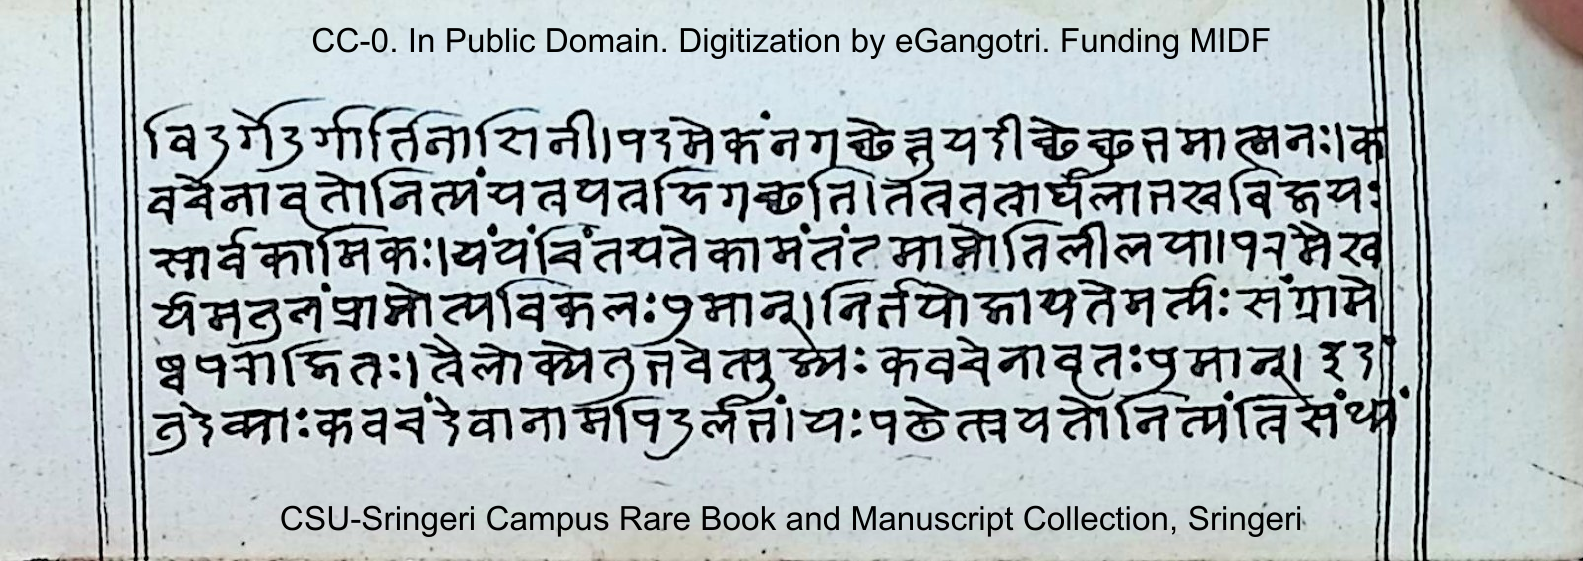 CC-0. In Public Domain. Digitization by eGangotri. Funding MIDF
वि दुर्गे दुर्गार्तिनाशिनी।पदमेकंनगच्छेत्तुयदीच्छेच्छुभमात्मनः।क
वचेनावृतोनित्यंयत्रयत्रहिगच्छति।तत्रतत्रार्थलाभश्चविजयः
सार्वकामिकः।यंयंचिंतयतेकामंतंतमाप्नोतिलीलया।परमैश्व
र्यमतुलंप्राप्नोत्यविकलःपुमान्।निर्भयोजायतेमर्त्यःसंग्रामे
ष्वपराजितः।त्रैलोक्येतुभवेत्पूज्यःकवचेनावृतःपुमान्।इदं
तुदेव्याःकवचंदेवानामपिदुर्लभं।यःपठेत्प्रयतोनित्यंत्रिसंध्यं
CSU-Sringeri Campus Rare Book and Manuscript Collection, Sringeri